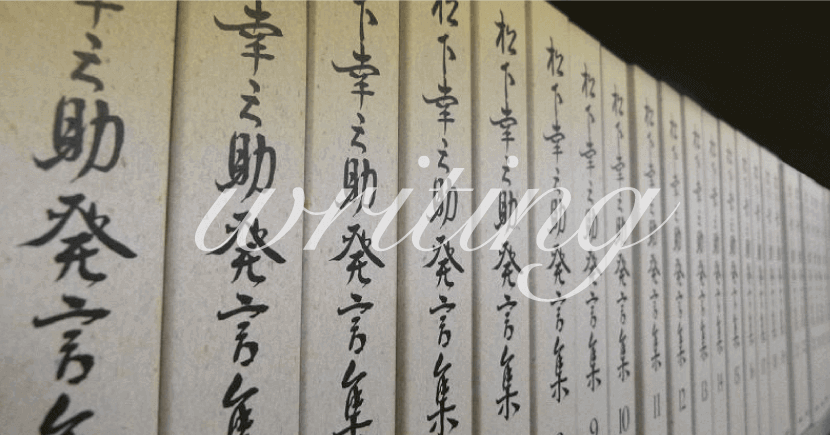 幸之助発言集
幸之助発言集
下幸之助発言集
松下幸之助発言集
松下幸之助発言集
松下幸之助発言集
松下幸之助発言集 9
松下幸之助発言集 10
松下幸之助発言集 11
松下幸之助発言集 12
松下幸之助発言集 13
松下幸之助発言集 14
松下幸之助発言集 15
writing